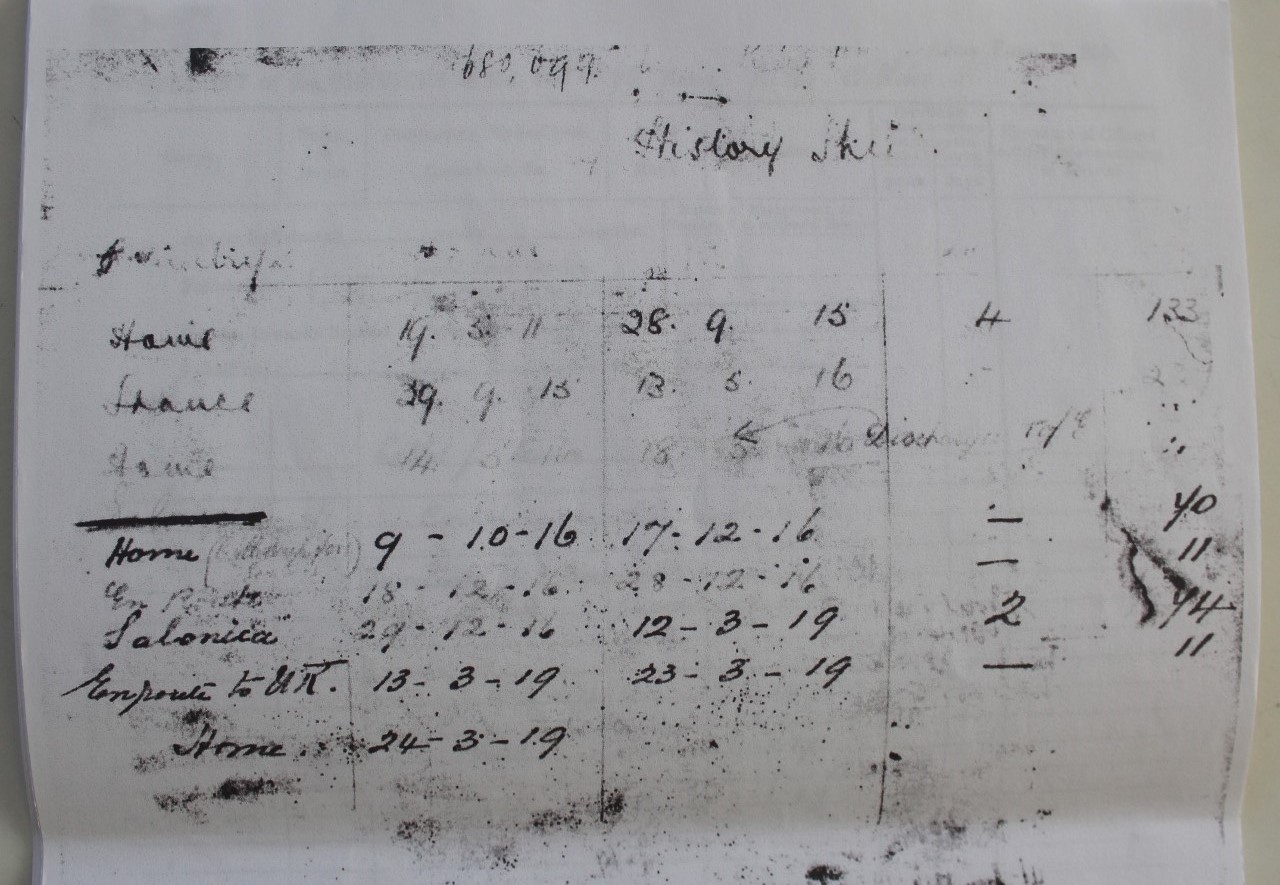 680,099.
History
Home 19. 5 11 28. 9. 15 4 133
France 29. 9. 15 13. 5. 16
Home 14. 5 16 18. 5 16 Discharged
Home 9 - 10-16 17-12-16 — 70
En Route 18-12-16 28-12-16 — 11
Salonica 29-12-16 12-3-19 2 74
Enroute to UK. 13-3-19 23-3-19 — 11
Home 24-3-19